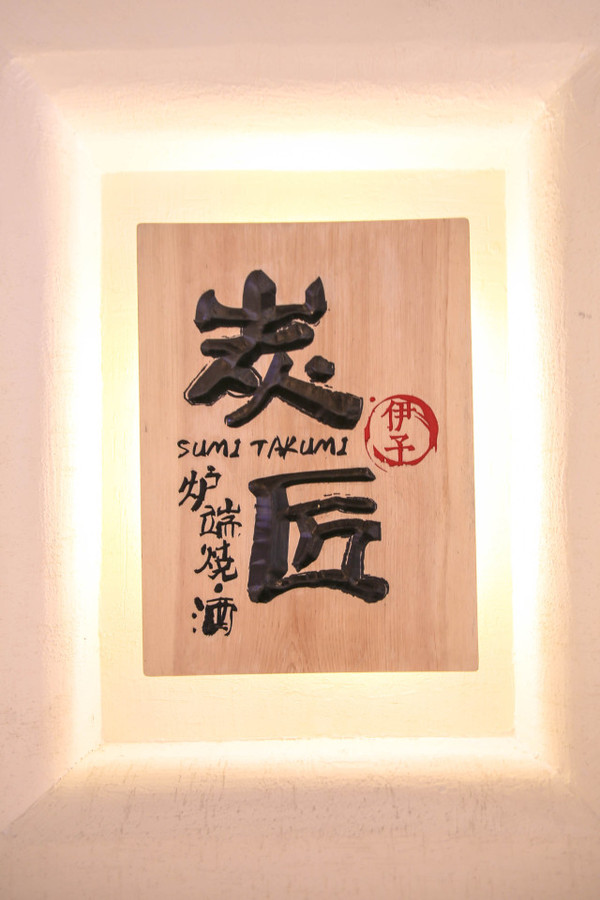 炭
SUMI TAKUMI
匠
伊予
炉端燒·酒